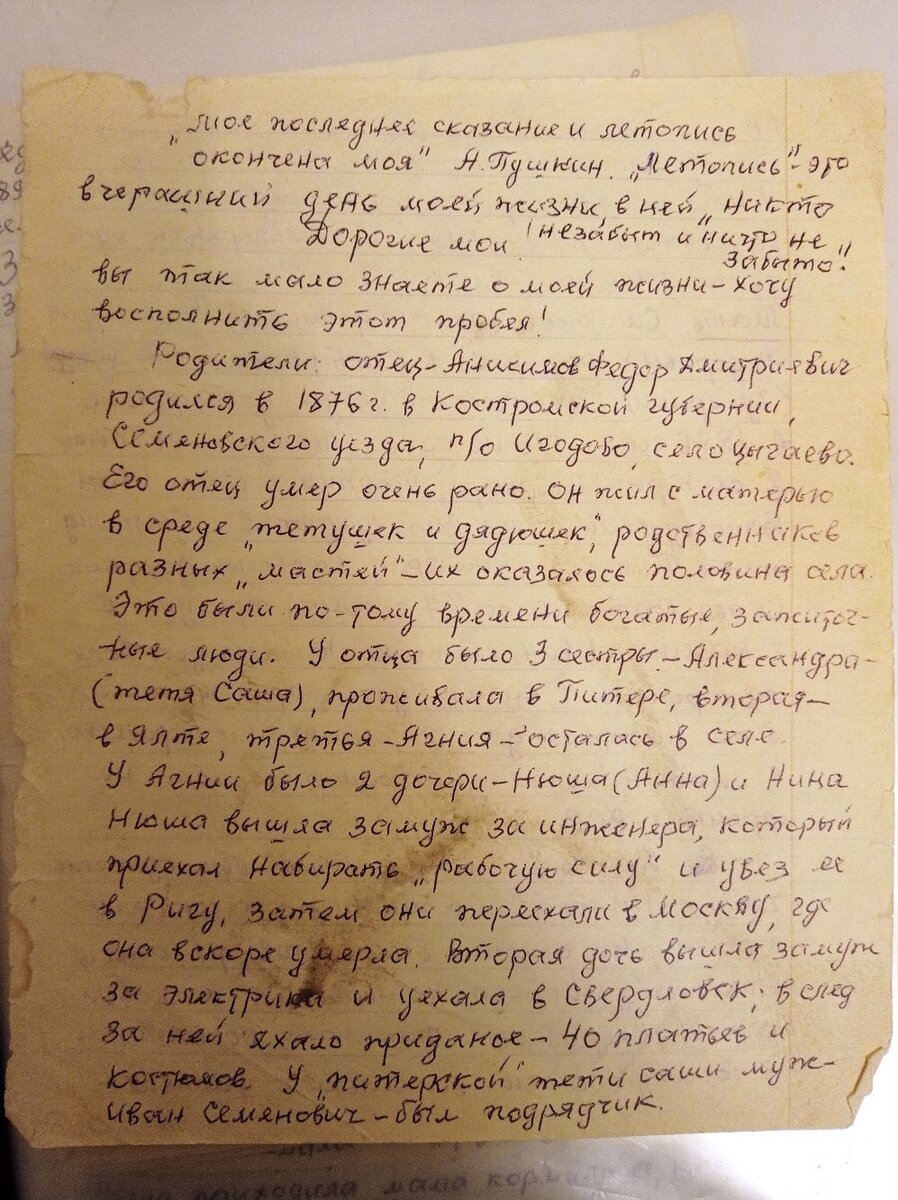 „Мое последнее сказание и летопись
окончена моя" А.Пушкин. „Летопись"- это
вчерашний день моей жизни, в ней „никто
Дорогие мои! незабыт и ничто не
забыто."
вы так мало знаете о моей жизни – хочу
восполнить этот пробел!
Родители: отец – Анисимов Федор Дмитриевич
родился в 1876г. в Костромской губернии,
Семеновского уезда, п/о Игодово, село Цыгаево.
Его отец умер очень рано. Он жил с матерью
в среде „тетушек и дядюшек", родственников
разных „мастей" – их оказалось половина села.
Это были по-тому времени богатые, зажиточ-
ные люди. У отца было 3 сестры – Александра –
(тетя Саша), проживала в Питере, вторая –
в Ялте, третья – Агния – осталась в селе.
У Агнии было 2 дочери – Нюша (Анна) и Нина
Нюша вышла замуж за инженера, который
приехал набирать „рабочую силу" и увез ее
в Ригу, затем они переехали в Москву, где
она вскоре умерла. Вторая дочь вышла замуж
за электрика и уехала в Свердловск; в след
за ней ехало приданое – 40 платьев и
костюмов. У „питерской" тети Саши муж –
Иван Семенович – был подрядчик.
приходила мама кормила